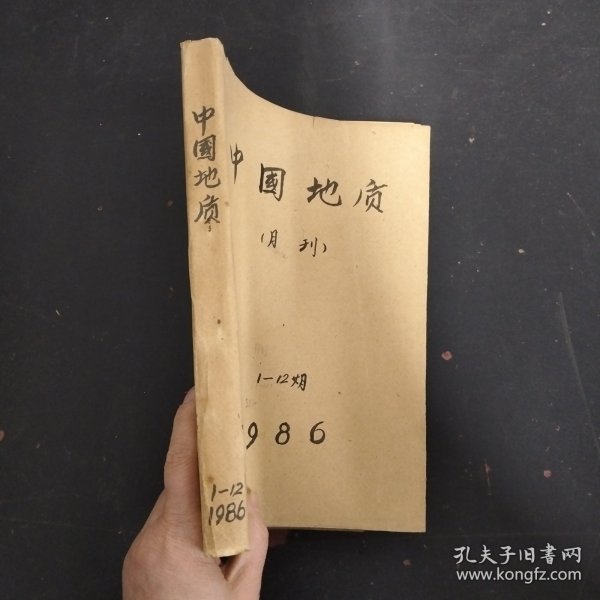 中國地质
1-12
1986
中國地质
(月刊)
1-12期
1986
孔夫子旧書网
www.kongfz.com